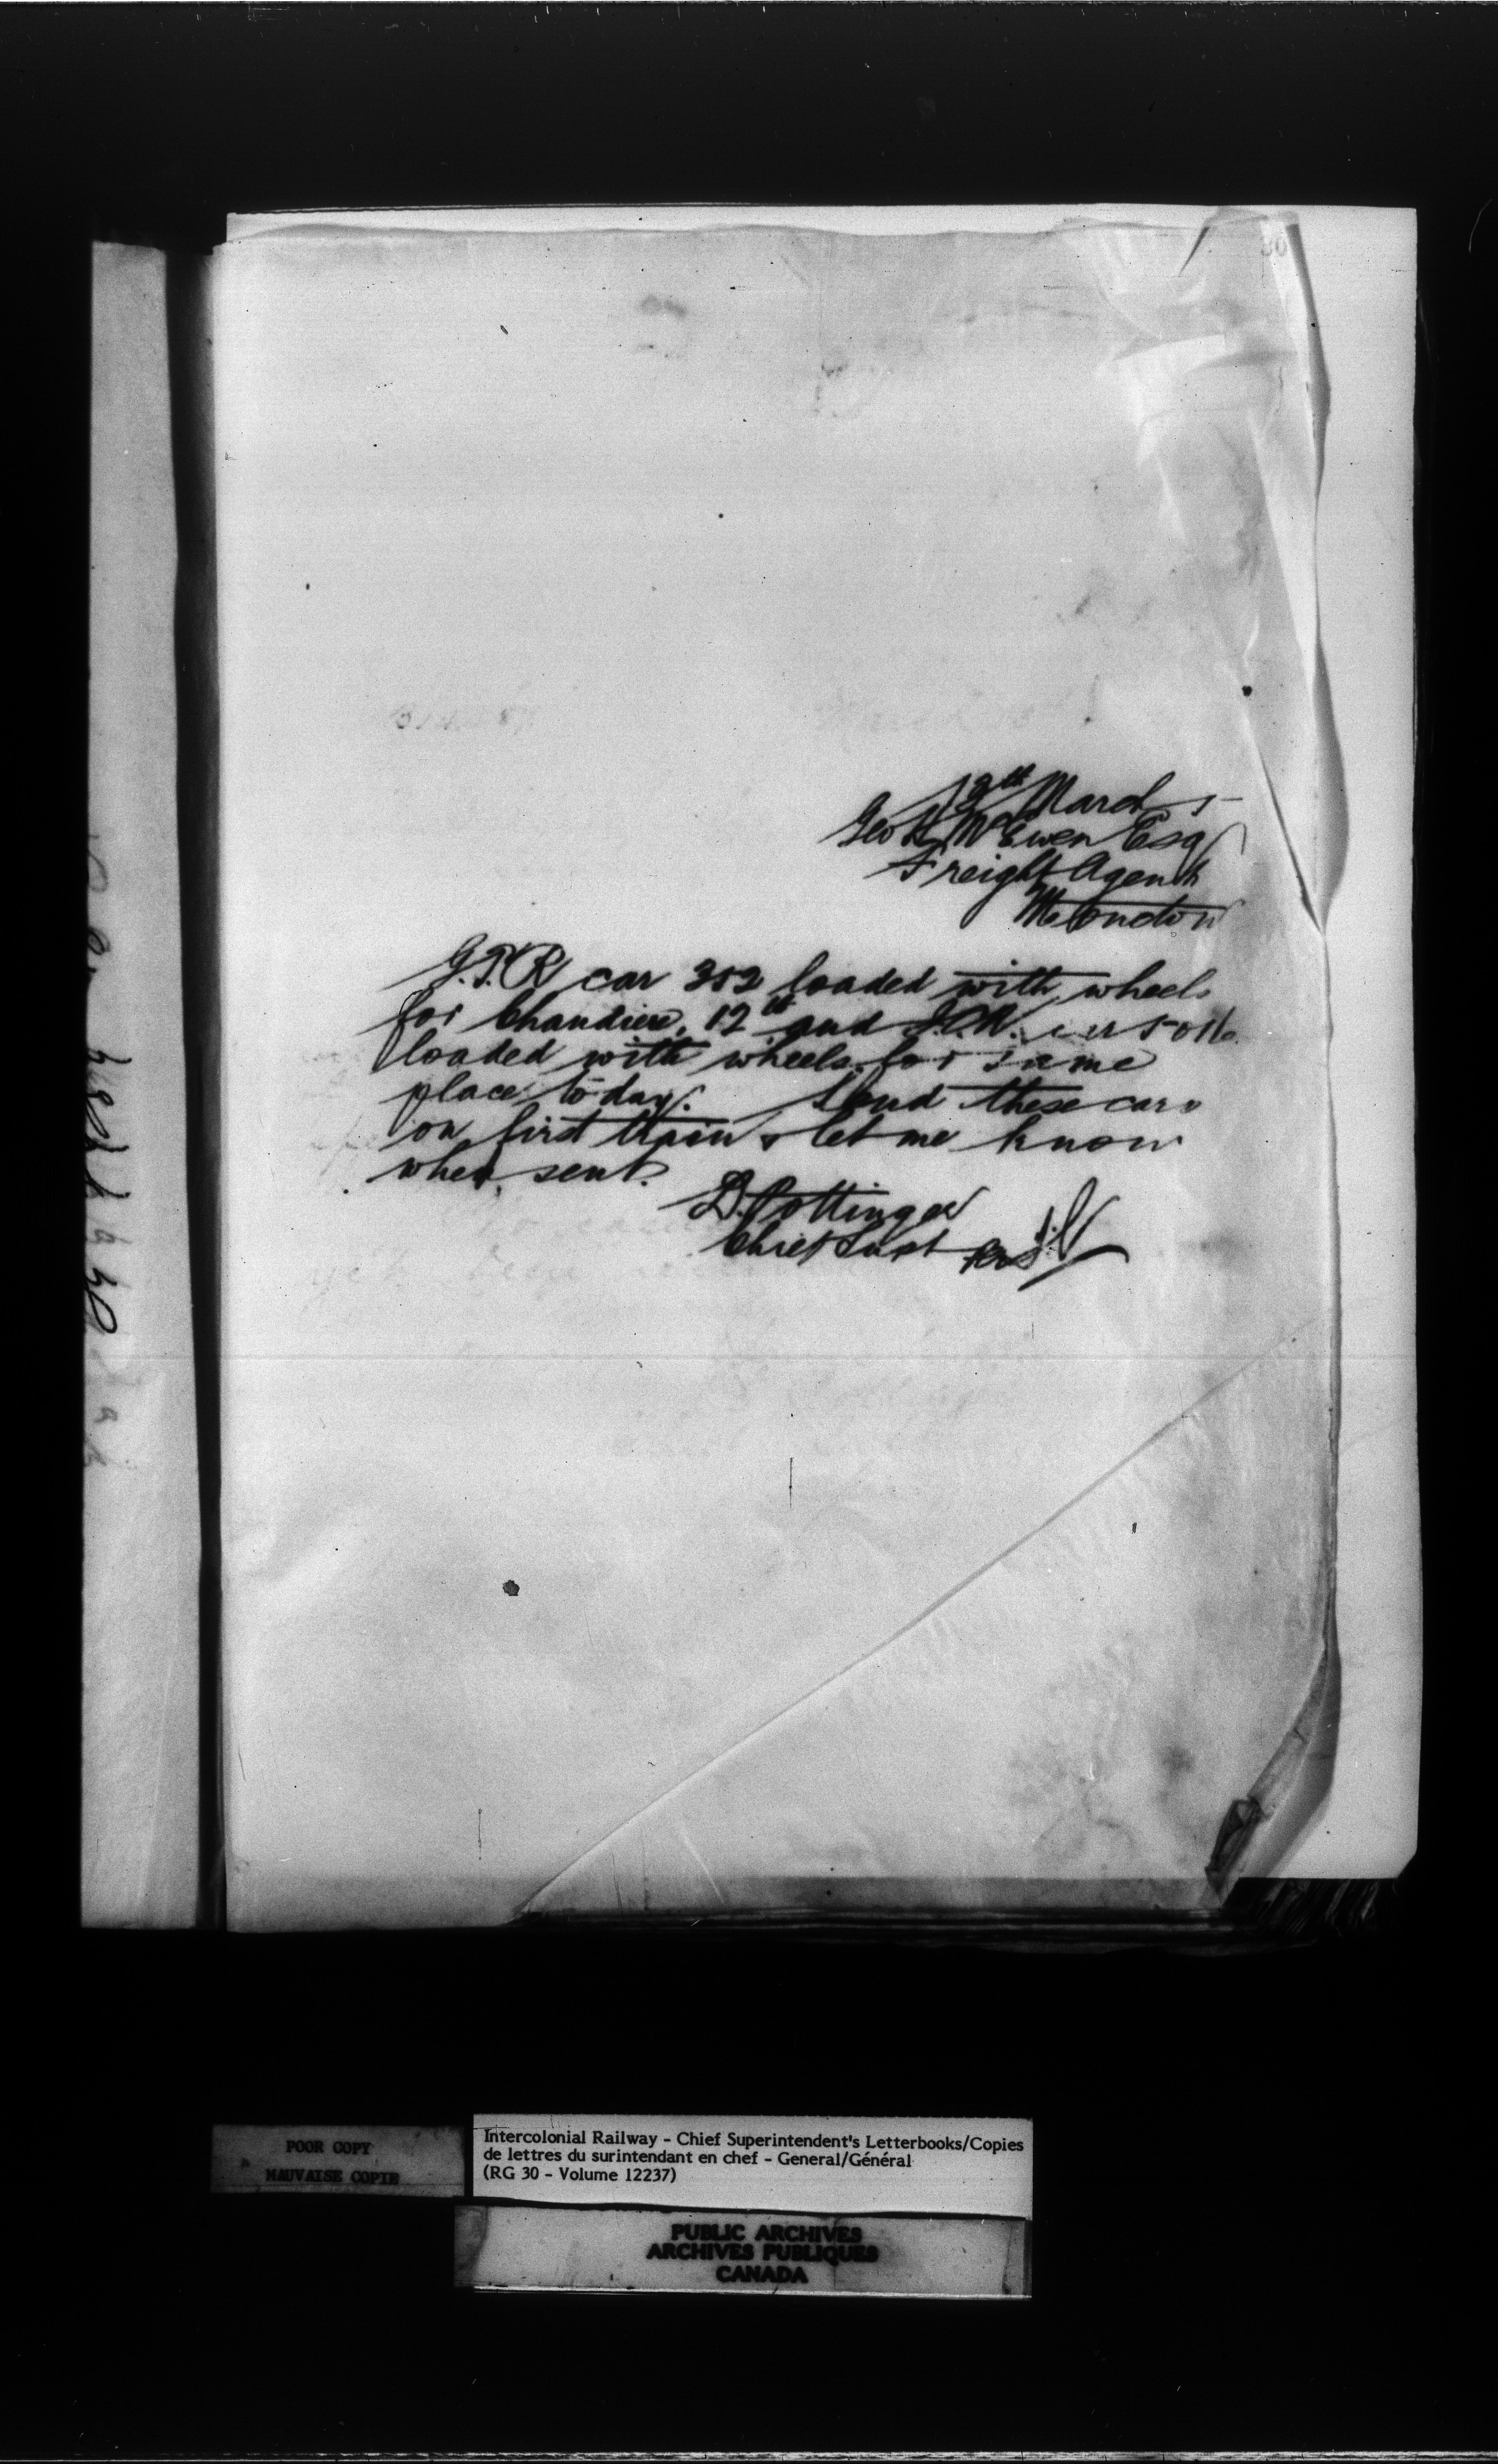 30
12th March 5
Geo H. McEwen Esq
Freight Agent
Moncton
G.T.R car 352 loaded with wheels
for Chaudiere, 12th and I.C.R.
loaded with wheels for same
place to-day. Send these cars
on first train & let me know
when sent.
D. Pottinger
Chief Supt
POOR COPY
MAUVAISE COPIE
Intercolonial Railway - Chief Superintendent's Letterbooks/Copies
de lettres du surintendant en chef - General/Général
(RG 30 - Volume 12237)
PUBLIC ARCHIVES
ARCHIVES PUBLIQUES
CANADA